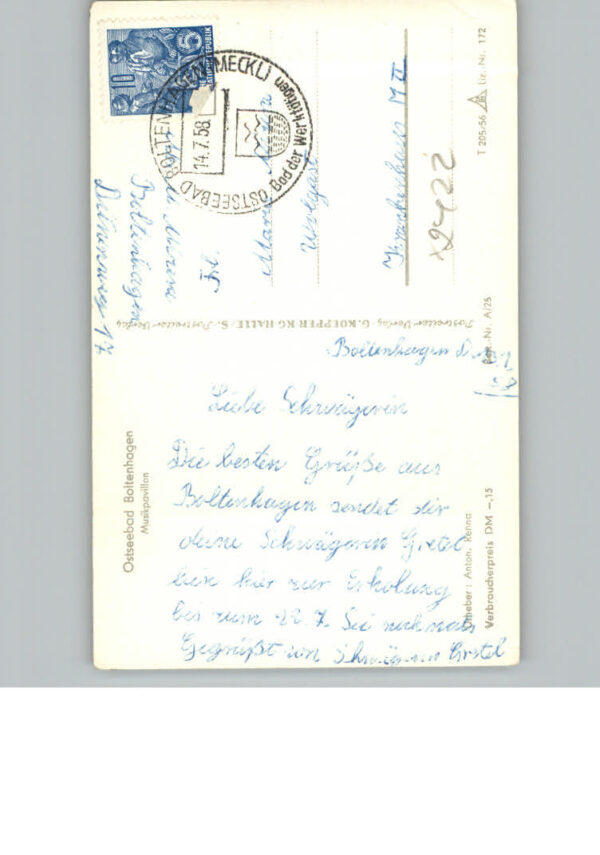 10
5
OSTSEEBAD BOLTENHAGEN (MECKL)
Bad der Werktätigen
14.7.58
Boltenhagen
Dünenweg 17
Frl.
Wolgast
Krankenhaus M II
x2422
T 205/56 Liz. Nr. 172
Postreiter-Verlag · G. KOEPPER KG HALLE/S. · Postreiter-Verlag
Nr. A/25
Boltenhagen
Liebe Schwägerin
Die besten Grüße aus
Boltenhagen sendet dir
deine Schwägerin Gretel
bin hier zur Erholung
bis zum 22.7. Sei nochmals
Gegrüßt von Schwägerin Gretel
Ostseebad Boltenhagen
Musikpavillon
Urheber: Anton. Renna
Verbraucherpreis DM -,15